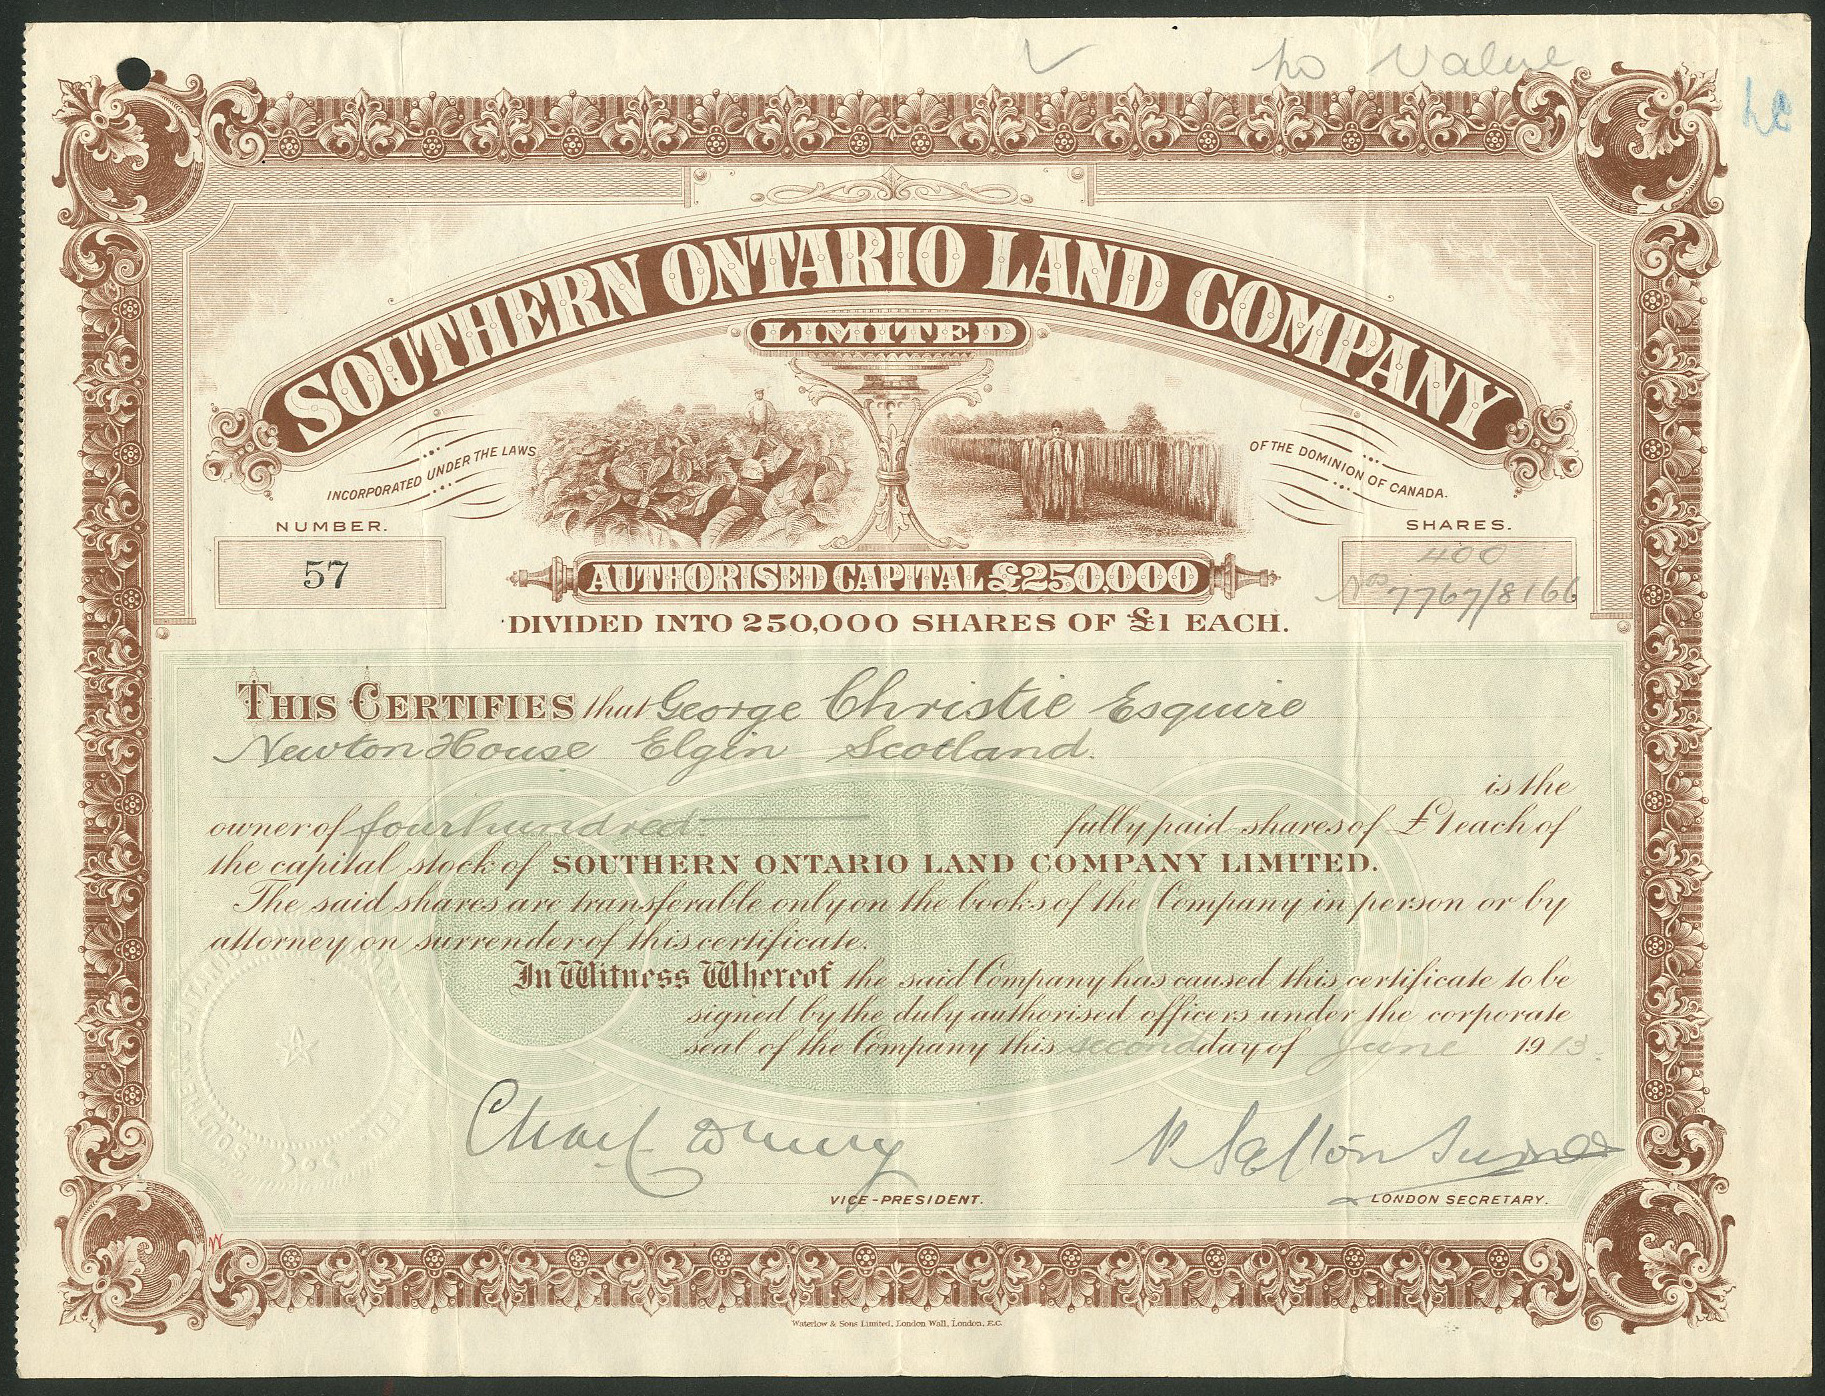 ✓ No Value
SOUTHERN ONTARIO LAND COMPANY
LIMITED
INCORPORATED UNDER THE LAWS
OF THE DOMINION OF CANADA.
NUMBER.
57
SHARES.
400
Nos 7767/8166
AUTHORISED CAPITAL £250,000
DIVIDED INTO 250,000 SHARES OF £1 EACH.
THIS CERTIFIES that George Christie Esquire
Newton House Elgin Scotland.
is the
owner of four hundred fully paid shares of £1 each of
the capital stock of SOUTHERN ONTARIO LAND COMPANY LIMITED.
The said shares are transferable only on the books of the Company in person or by
attorney on surrender of this certificate.
In Witness Whereof the said Company has caused this certificate to be
signed by the duly authorised officers under the corporate
seal of the Company this second day of June 1913.
VICE-PRESIDENT.
LONDON SECRETARY.
Waterlow & Sons Limited, London Wall, London, E.C.